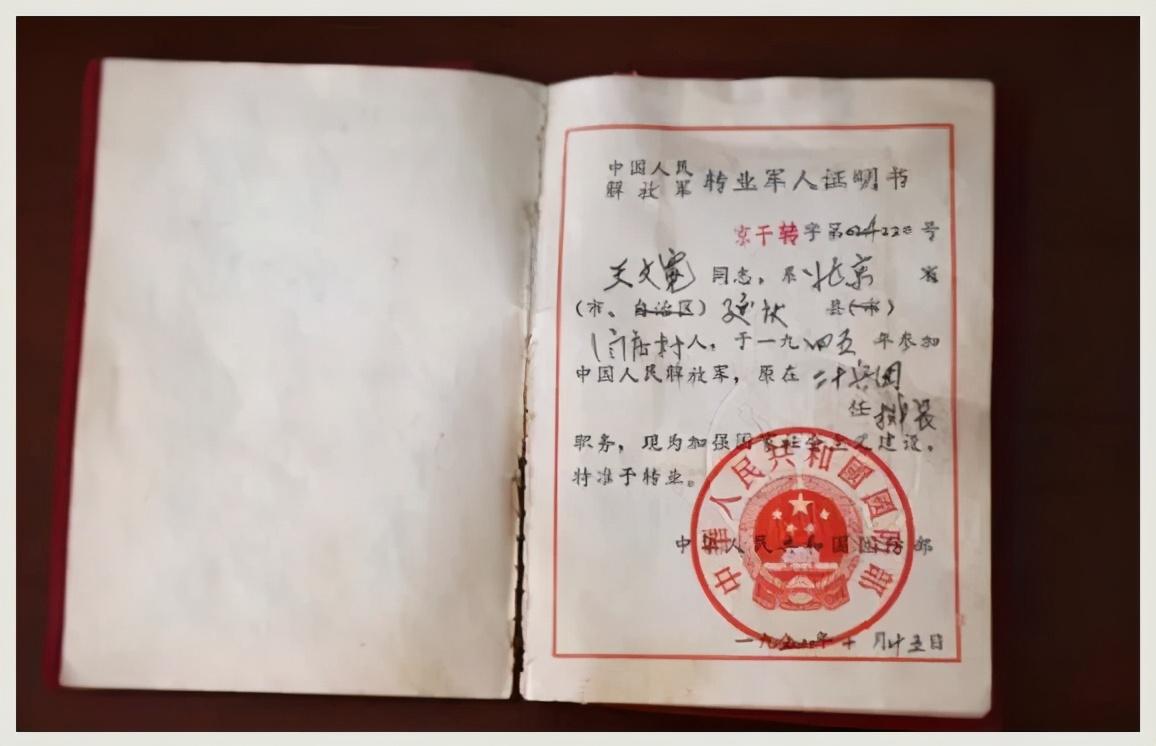 中国人民
解放军 转业军人证明书
京干转字第 号
文宽 同志,系北京 省
(市、自治区) 延庆 县(市)
村人,于一九四五 年参加
中国人民解放军,原在 二十兵团
任 排长
职务,现为加强国家社会主义建设,
特准予转业。
中华人民共和国国防部
中华人民共和國國防部
一九五 年十月廿五日